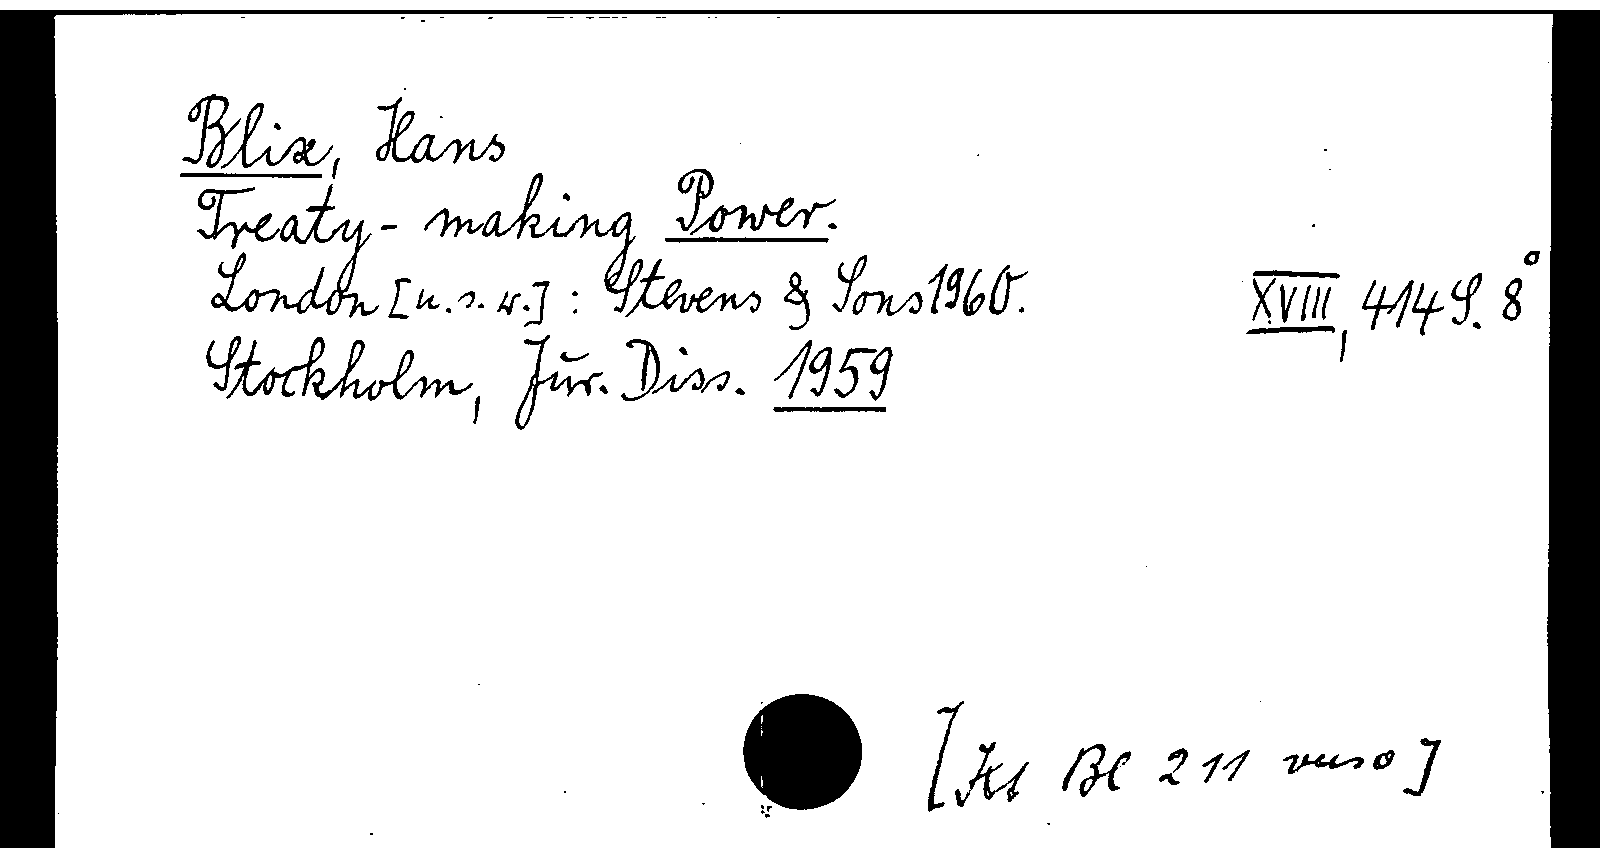 Blix, Hans
Treaty-making Power.
London [u.s.w.]: Stevens & Sons 1960. XVIII, 414 S. 8°
Stockholm, Jur. Diss. 1959
[Bl 211